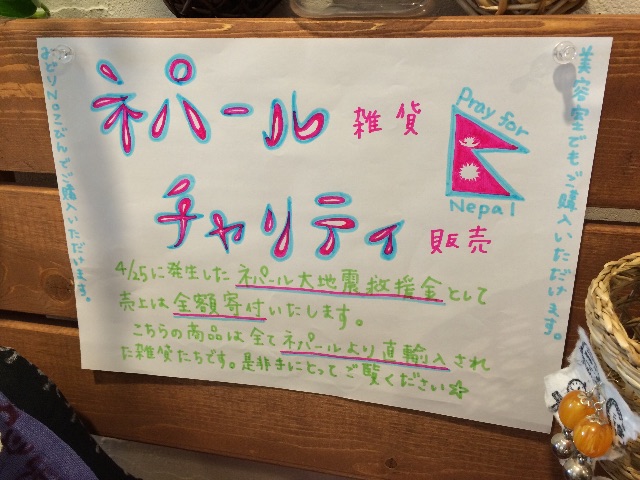 ネパール 雑貨
チャリティ 販売
Pray for
Nepal
4/25に発生したネパール大地震救援金として
売上は全額寄付いたします。
こちらの商品は全てネパールより直輸入され
た雑貨たちです。是非手にとってご覧ください☆
美容室でもご購入いただけます。
ご購入いただけます。